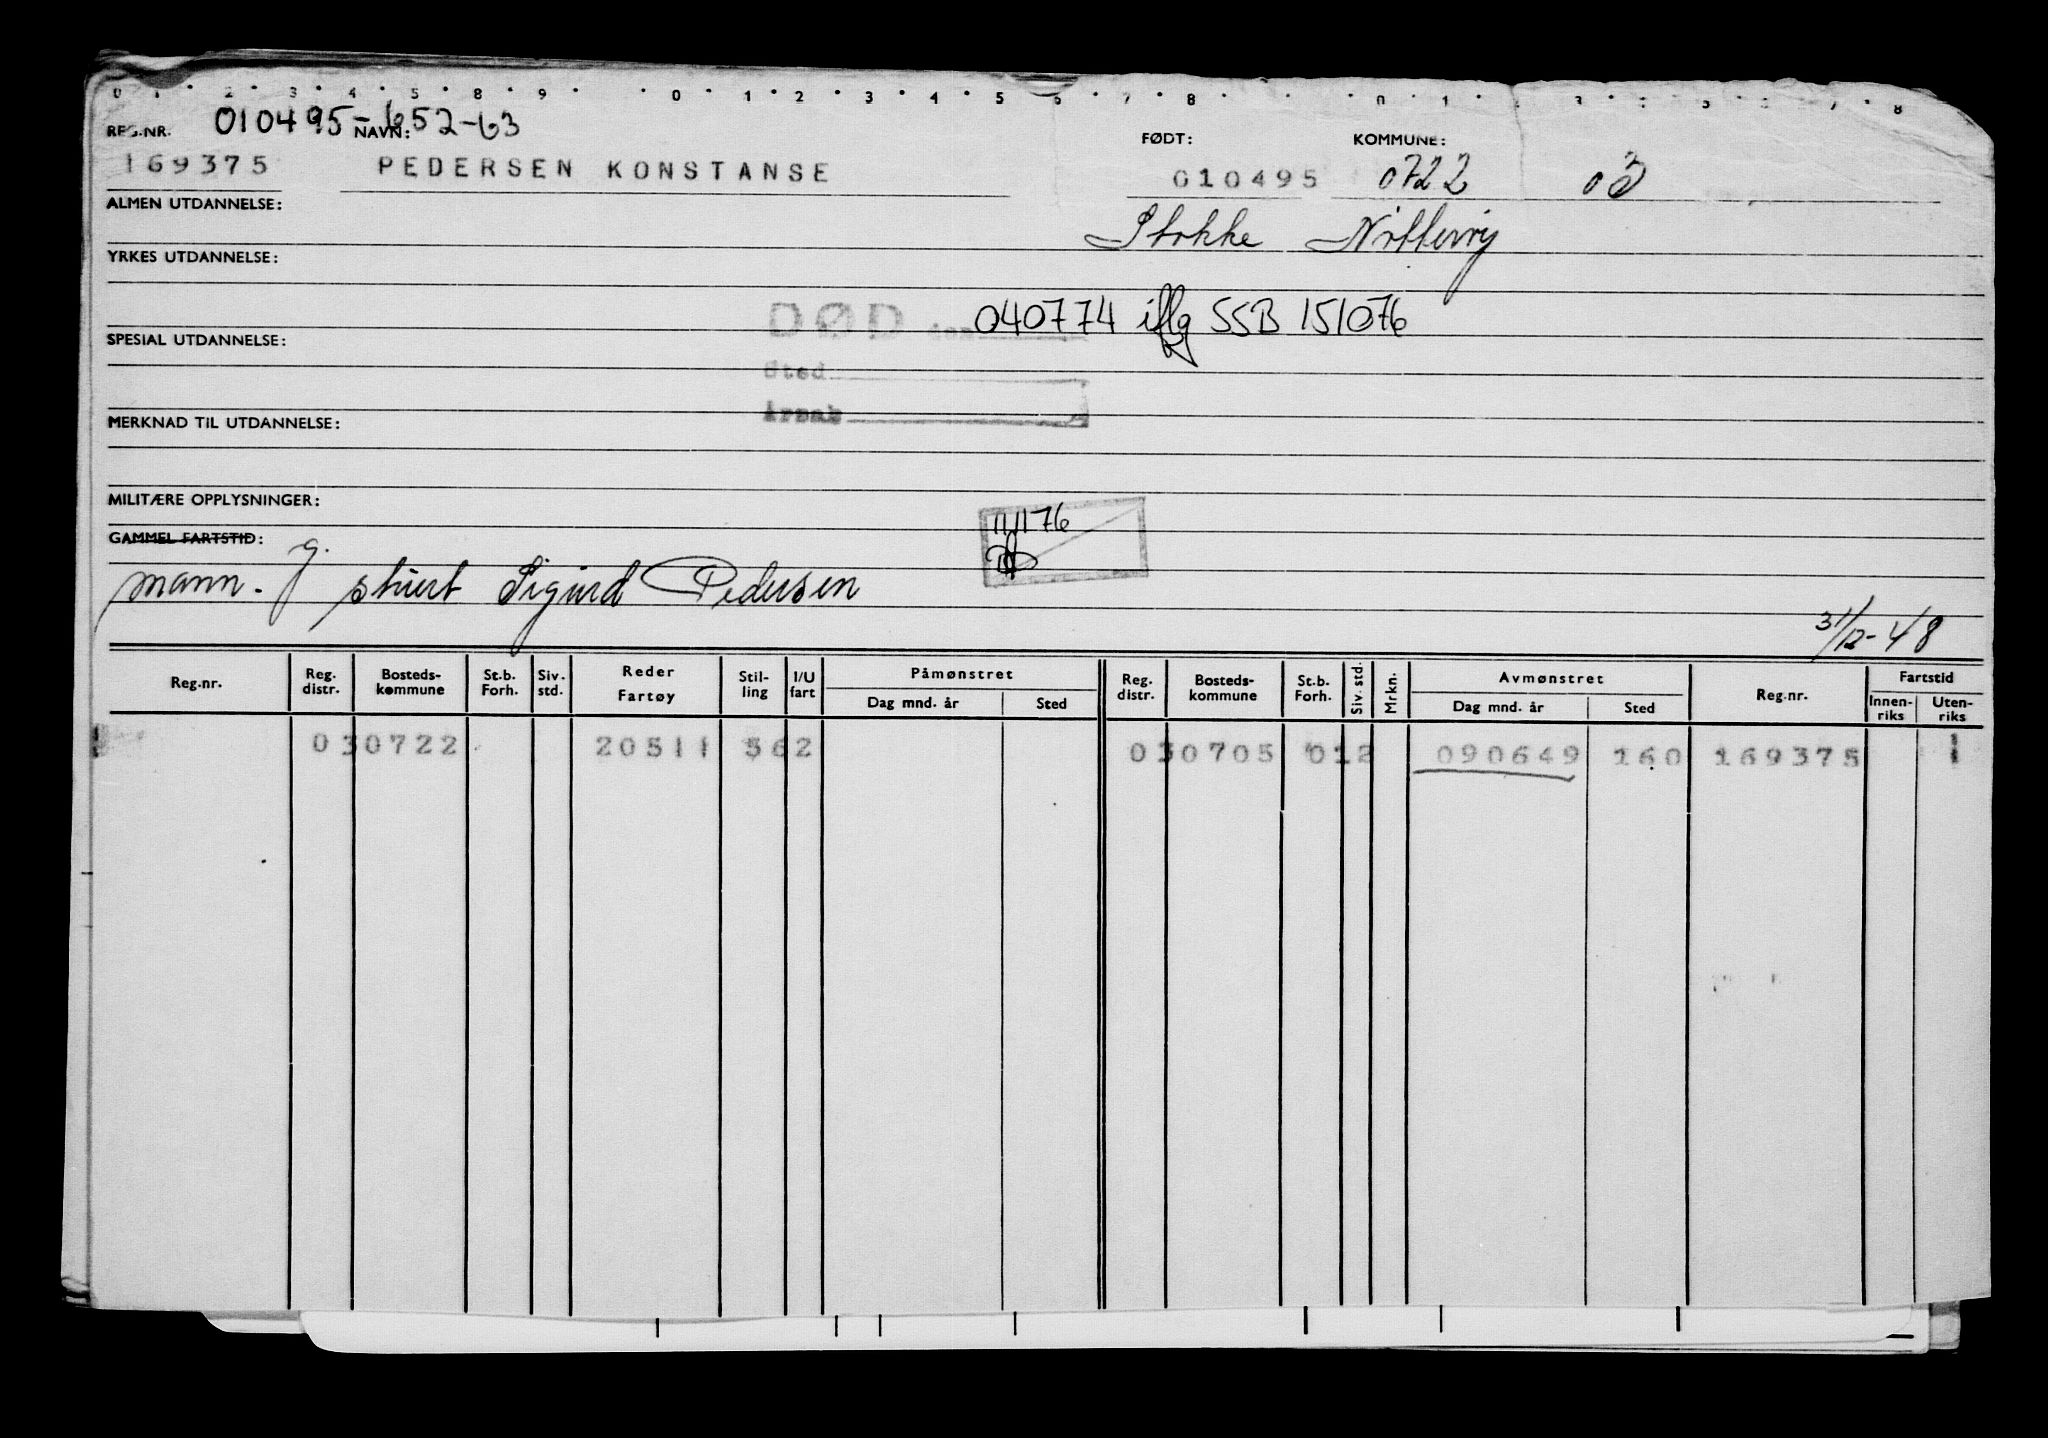 0 1 2 3 4 5 8 9 0 1 2 3 4 5 6 7 8 0 1 3 7 8
REG.NR. 010495-652-63 NAVN: FØDT: KOMMUNE:
169375 PEDERSEN KONSTANSE 010495 0722 03
ALMEN UTDANNELSE:
Stokke Nøtterøy
YRKES UTDANNELSE:
DØD den 040774 iflg SSB 151076
SPESIAL UTDANNELSE:
Sted
Årsak
MERKNAD TIL UTDANNELSE:
MILITÆRE OPPLYSNINGER:
11/1176
GAMMEL FARTSTID:
mann. g. stuert Sigurd Pedersen
31/12-48
Reg.nr. Reg. distr. Bosteds-kommune St.b. Forh. Siv. std. Reder Fartøy Stil-ling I/U fart Påmønstret Dag mnd. år Sted Reg. distr. Bosteds-kommune St.b. Forh. Siv. std. Mrkn. Avmønstret Dag mnd. år Sted Reg.nr. Fartstid Innen-riks Uten-riks
030722 20511 562 030705 012 090649 160 169375 1